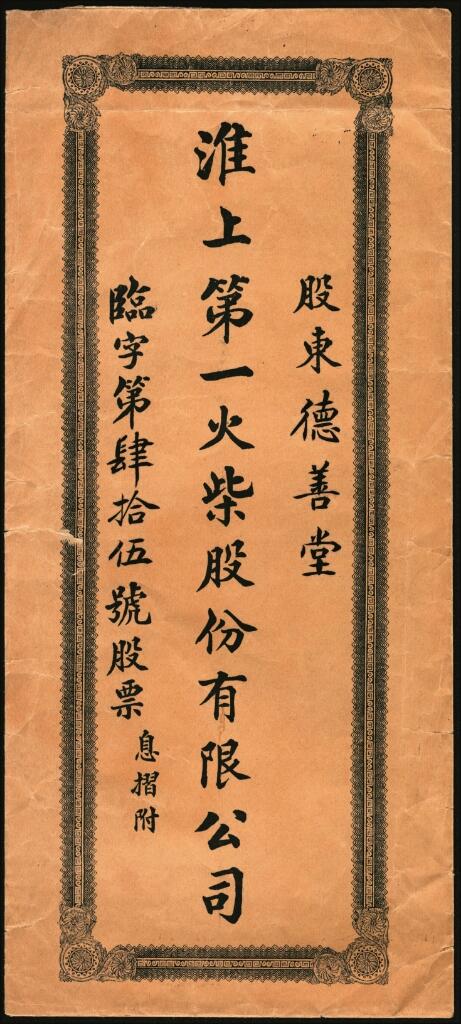 股東德善堂
淮上第一火柴股份有限公司
臨字第肆拾伍號股票
息摺附